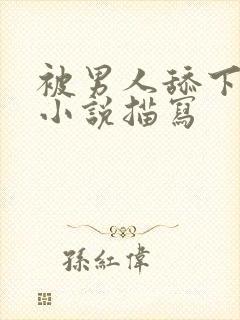 被男人舔下
小說描寫
孫紅偉